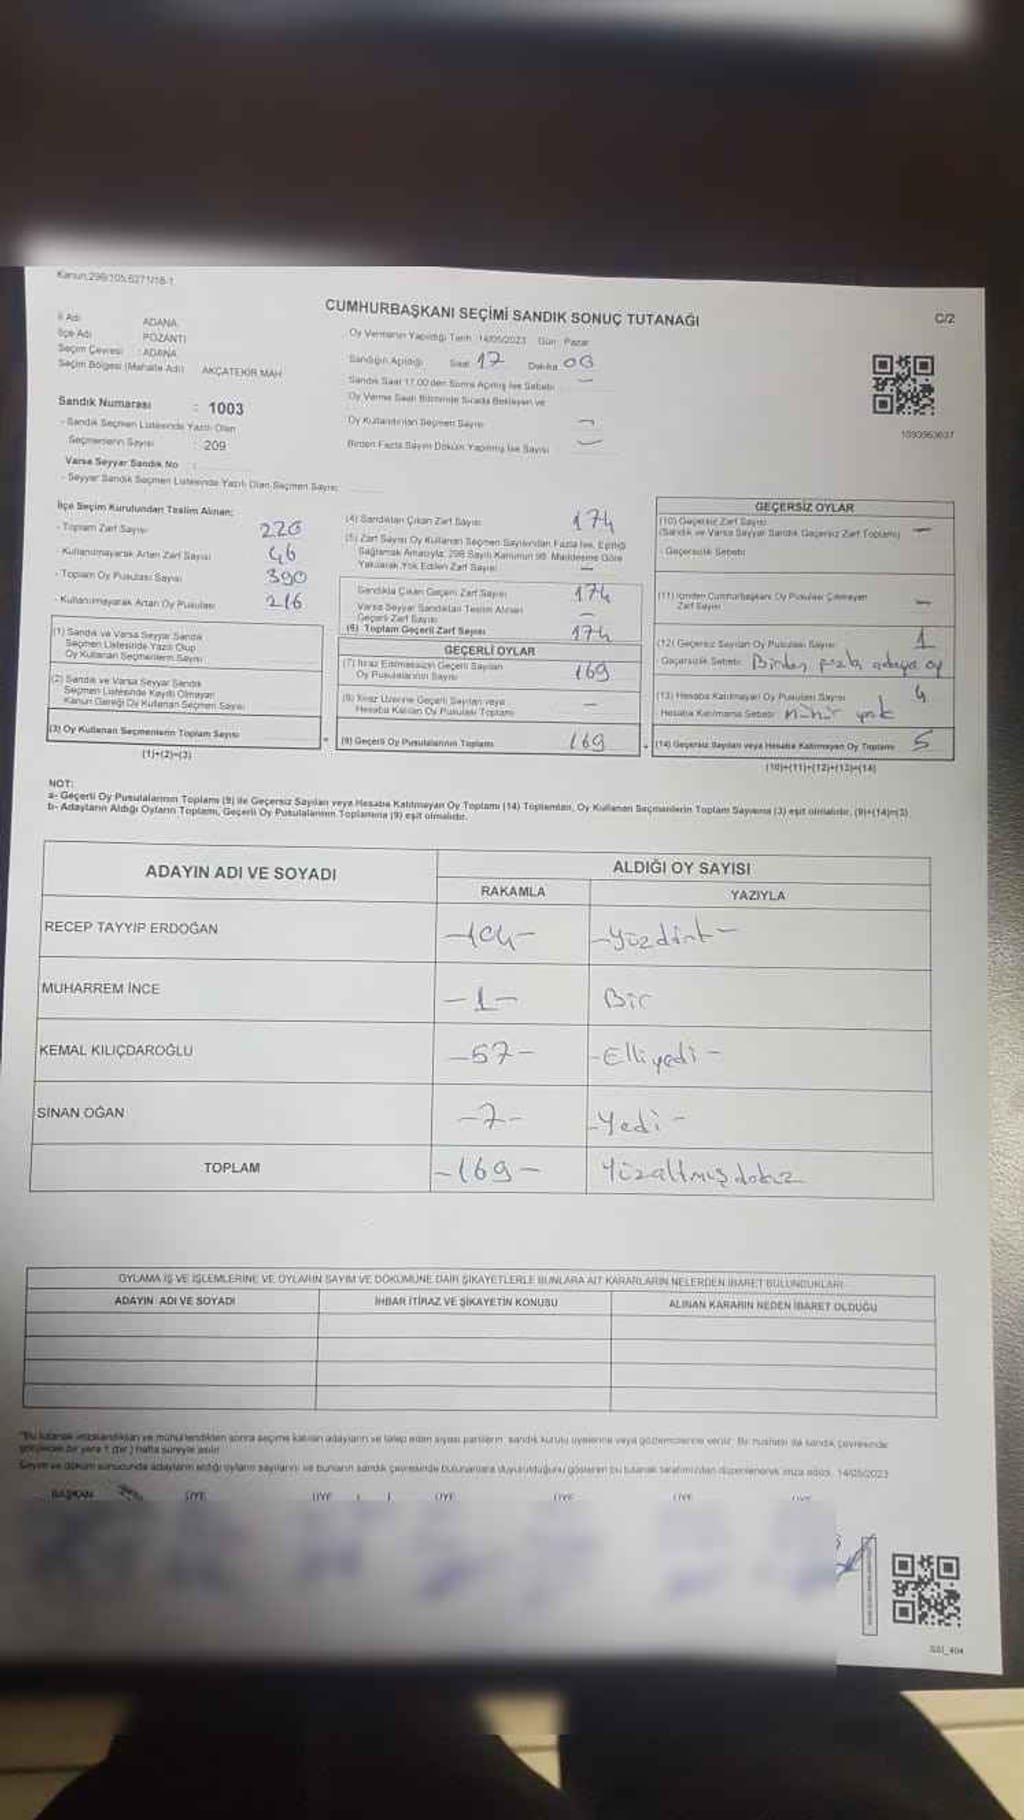 Kanun:298/105,6271/18-1
CUMHURBAŞKANI SEÇİMİ SANDIK SONUÇ TUTANAĞI
C/2
İl Adı ADANA
İlçe Adı POZANTI
Seçim Çevresi : ADANA
Seçim Bölgesi (Mahalle Adı) AKÇATEKİR MAH
Oy Vermenin Yapıldığı Tarih 14/05/2023 Gün Pazar
Sandığın Açıldığı Saat 17 Dakika
Sandık Saat 17.00'den Sonra Açılmış İse Sebebi —
Oy Verme Saati Bitiminde Sırada Bekleyen ve
Oy Kullandırılan Seçmen Sayısı —
Birden Fazla Sayım Döküm Yapılmış İse Sayısı —
1090963637
Sandık Numarası : 1003
- Sandık Seçmen Listesinde Yazılı Olan
Seçmenlerin Sayısı : 209
Varsa Seyyar Sandık No :
- Seyyar Sandık Seçmen Listesinde Yazılı Olan Seçmen Sayısı:
İlçe Seçim Kurulundan Teslim Alınan:
- Toplam Zarf Sayısı 220
- Kullanılmayarak Artan Zarf Sayısı 46
- Toplam Oy Pusulası Sayısı 390
- Kullanılmayarak Artan Oy Pusulası 216
(1) Sandık ve Varsa Seyyar Sandık
Seçmen Listesinde Yazılı Olup
Oy Kullanan Seçmenlerin Sayısı
(2) Sandık ve Varsa Seyyar Sandık
Seçmen Listesinde Kayıtlı Olmayan
Kanun Gereği Oy Kullanan Seçmen Sayısı
(3) Oy Kullanan Seçmenlerin Toplam Sayısı
(1)+(2)=(3)
(4) Sandıktan Çıkan Zarf Sayısı 174
(5) Zarf Sayısı Oy Kullanan Seçmen Sayısından Fazla İse, Eşitliği
Sağlamak Amacıyla, 298 Sayılı Kanunun 98. Maddesine Göre
Yakılarak Yok Edilen Zarf Sayısı —
Sandıkta Çıkan Geçerli Zarf Sayısı 174
Varsa Seyyar Sandıktan Teslim Alınan
Geçerli Zarf Sayısı —
(6) Toplam Geçerli Zarf Sayısı 174
GEÇERLİ OYLAR
(7) İtiraz Edilmeksizin Geçerli Sayılan
Oy Pusulalarının Sayısı 169
(8) İtiraz Üzerine Geçerli Sayılan veya
Hesaba Katılan Oy Pusulası Toplamı —
= (9) Geçerli Oy Pusulalarının Toplamı 169
GEÇERSİZ OYLAR
(10) Geçersiz Zarf Sayısı —
(Sandık ve Varsa Seyyar Sandık Geçersiz Zarf Toplamı)
- Geçersizlik Sebebi
(11) İçinden Cumhurbaşkanı Oy Pusulası Çıkmayan
Zarf Sayısı —
(12) Geçersiz Sayılan Oy Pusulası Sayısı 1
Geçersizlik Sebebi Birden fazla adaya oy
(13) Hesaba Katılmayan Oy Pusulası Sayısı 4
Hesaba Katılmama Sebebi Mühür yok
+ (14) Geçersiz Sayılan veya Hesaba Katılmayan Oy Toplamı 5
(10)+(11)+(12)+(13)=(14)
NOT:
a- Geçerli Oy Pusulalarının Toplamı (9) ile Geçersiz Sayılan veya Hesaba Katılmayan Oy Toplamı (14) Toplamları, Oy Kullanan Seçmenlerin Toplam Sayısına (3) eşit olmalıdır, (9)+(14)=(3)
b- Adayların Aldığı Oyların Toplamı, Geçerli Oy Pusulalarının Toplamına (9) eşit olmalıdır.
ADAYIN ADI VE SOYADI ALDIĞI OY SAYISI
RAKAMLA YAZIYLA
RECEP TAYYİP ERDOĞAN -104- -Yüzdört-
MUHARREM İNCE -1- Bir
KEMAL KILIÇDAROĞLU -57- -Elliyedi-
SİNAN OĞAN -7- -Yedi-
TOPLAM -169- Yüzaltmışdokuz
OYLAMA İŞ VE İŞLEMLERİNE VE OYLARIN SAYIM VE DÖKÜMÜNE DAİR ŞİKAYETLERLE BUNLARA AİT KARARLARIN NELERDEN İBARET BULUNDUKLARI
ADAYIN ADI VE SOYADI İHBAR İTİRAZ VE ŞİKAYETİN KONUSU ALINAN KARARIN NEDEN İBARET OLDUĞU
*Bu tutanak imzalandıktan ve mühürlendikten sonra seçime katılan adayların ve talep eden siyasi partilerin sandık kurulu üyelerine veya gözlemcilerine verilir. Bir nüshası da sandık çevresinde
görülecek bir yere 1 (bir) hafta süreyle asılır
Seçim ve döküm sonucunda adayların aldığı oyların sayılarını ve bunların sandık çevresinde bulunanlara duyurulduğunu gösteren bu tutanak tarafımızdan düzenlenerek imza edildi. 14/05/2023
BAŞKAN ÜYE ÜYE ÜYE ÜYE ÜYE ÜYE